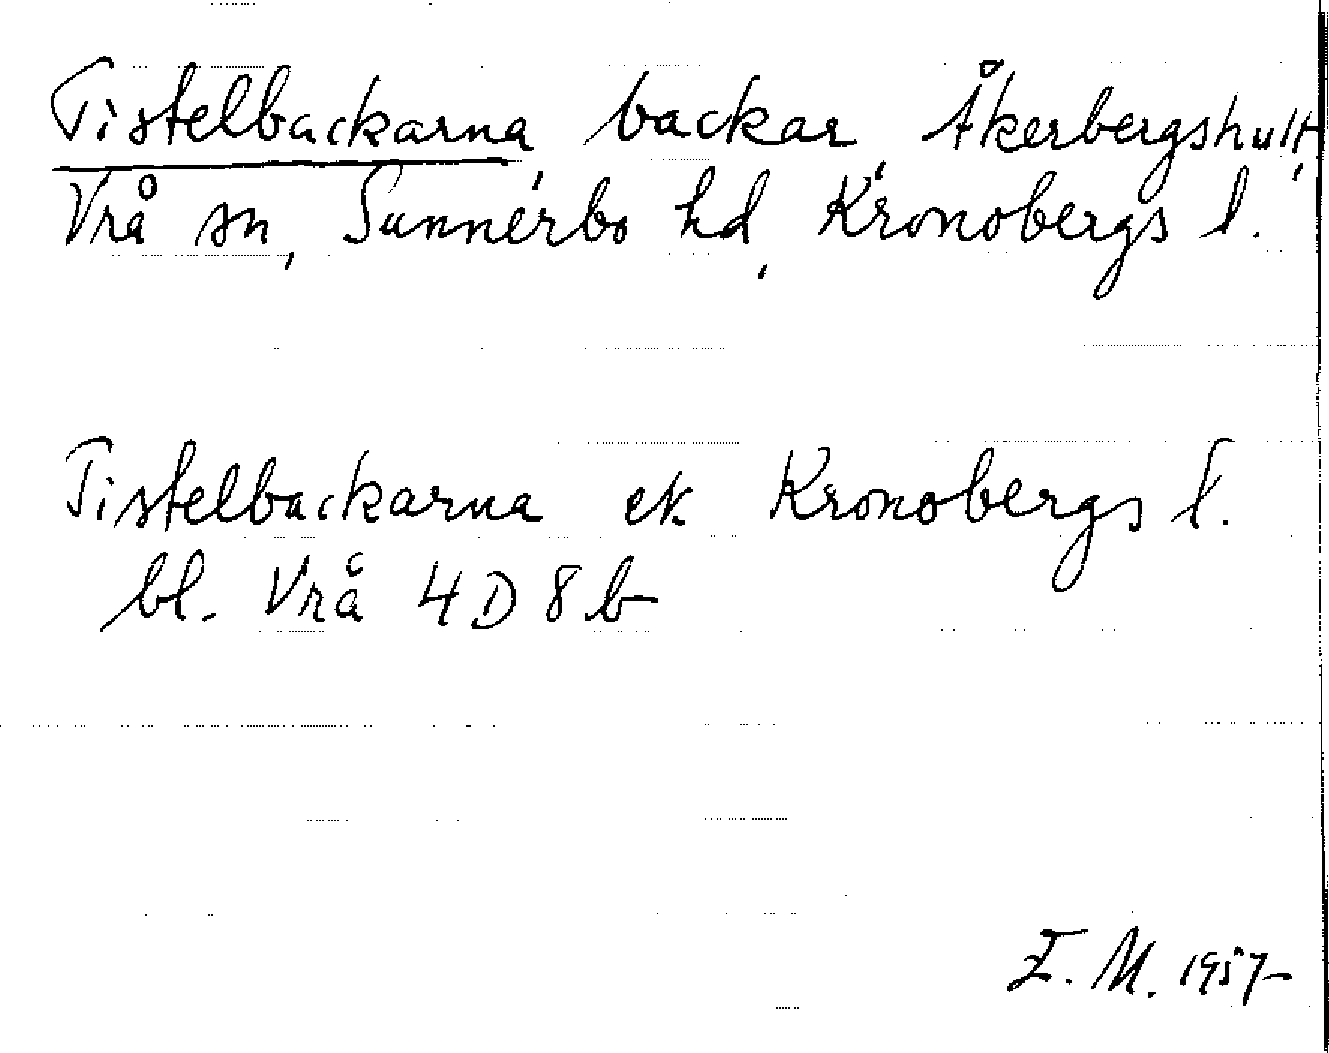 Tistelbackarna, backar, Åkerbergshult,
Vrå sn, Sunnerbo hd, Kronobergs l.
Tistelbackarna ek. Kronobergs l.
bl. Vrå 4D8b
E. M. 1957